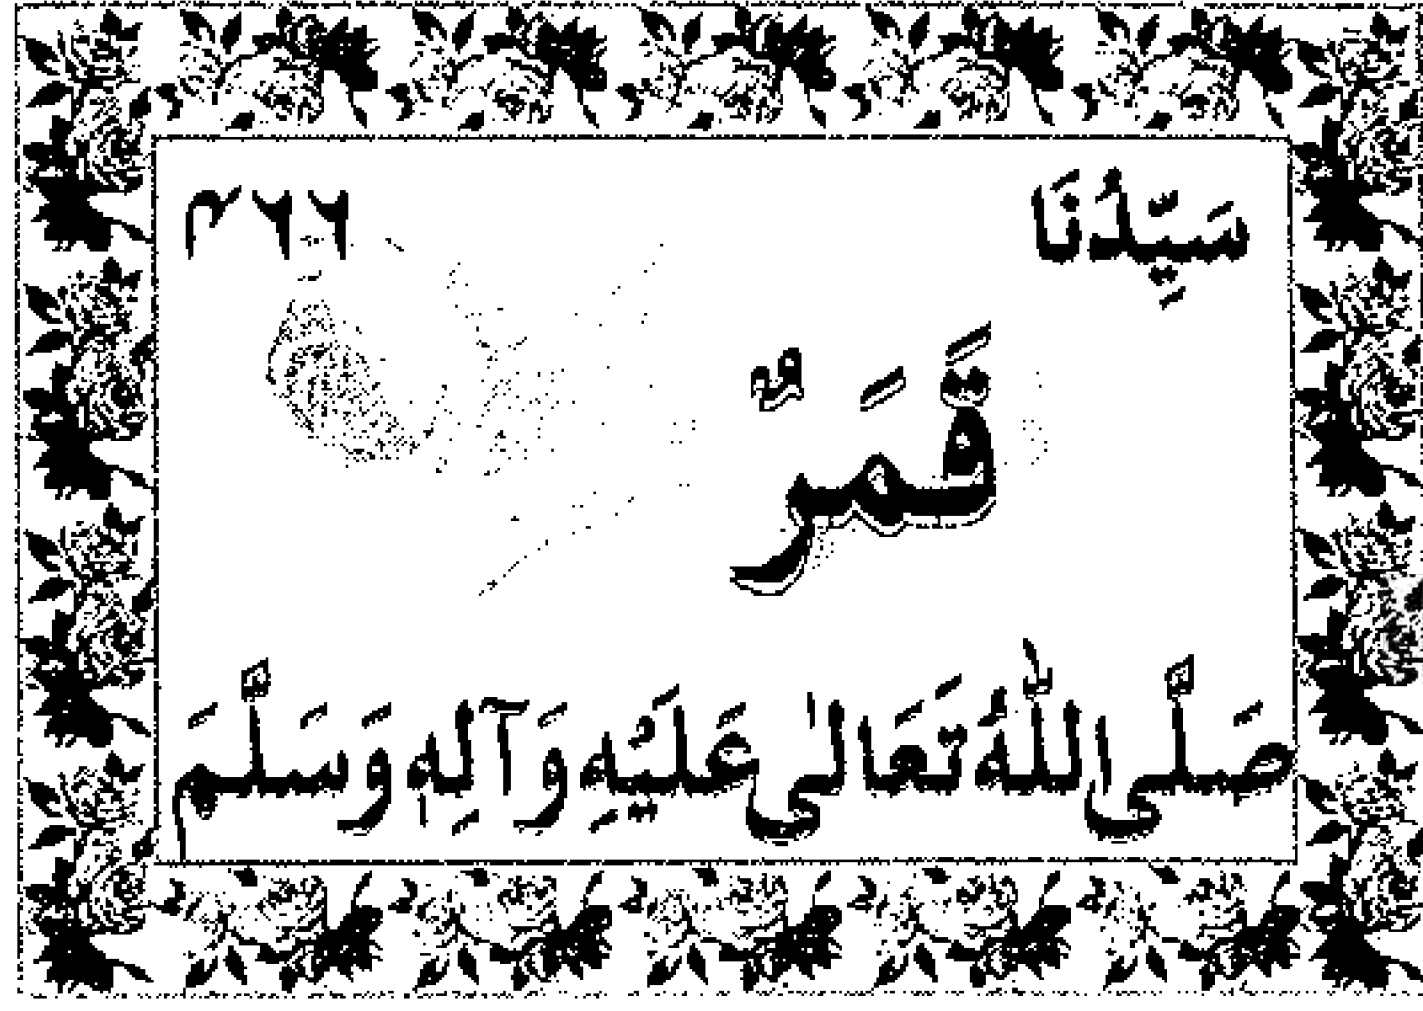 سَيِّدُنَا
قَمَرٌ
صَلَّى اللّٰهُ تَعَالٰى عَلَيْهِ وَآلِهٖ وَسَلَّمَ